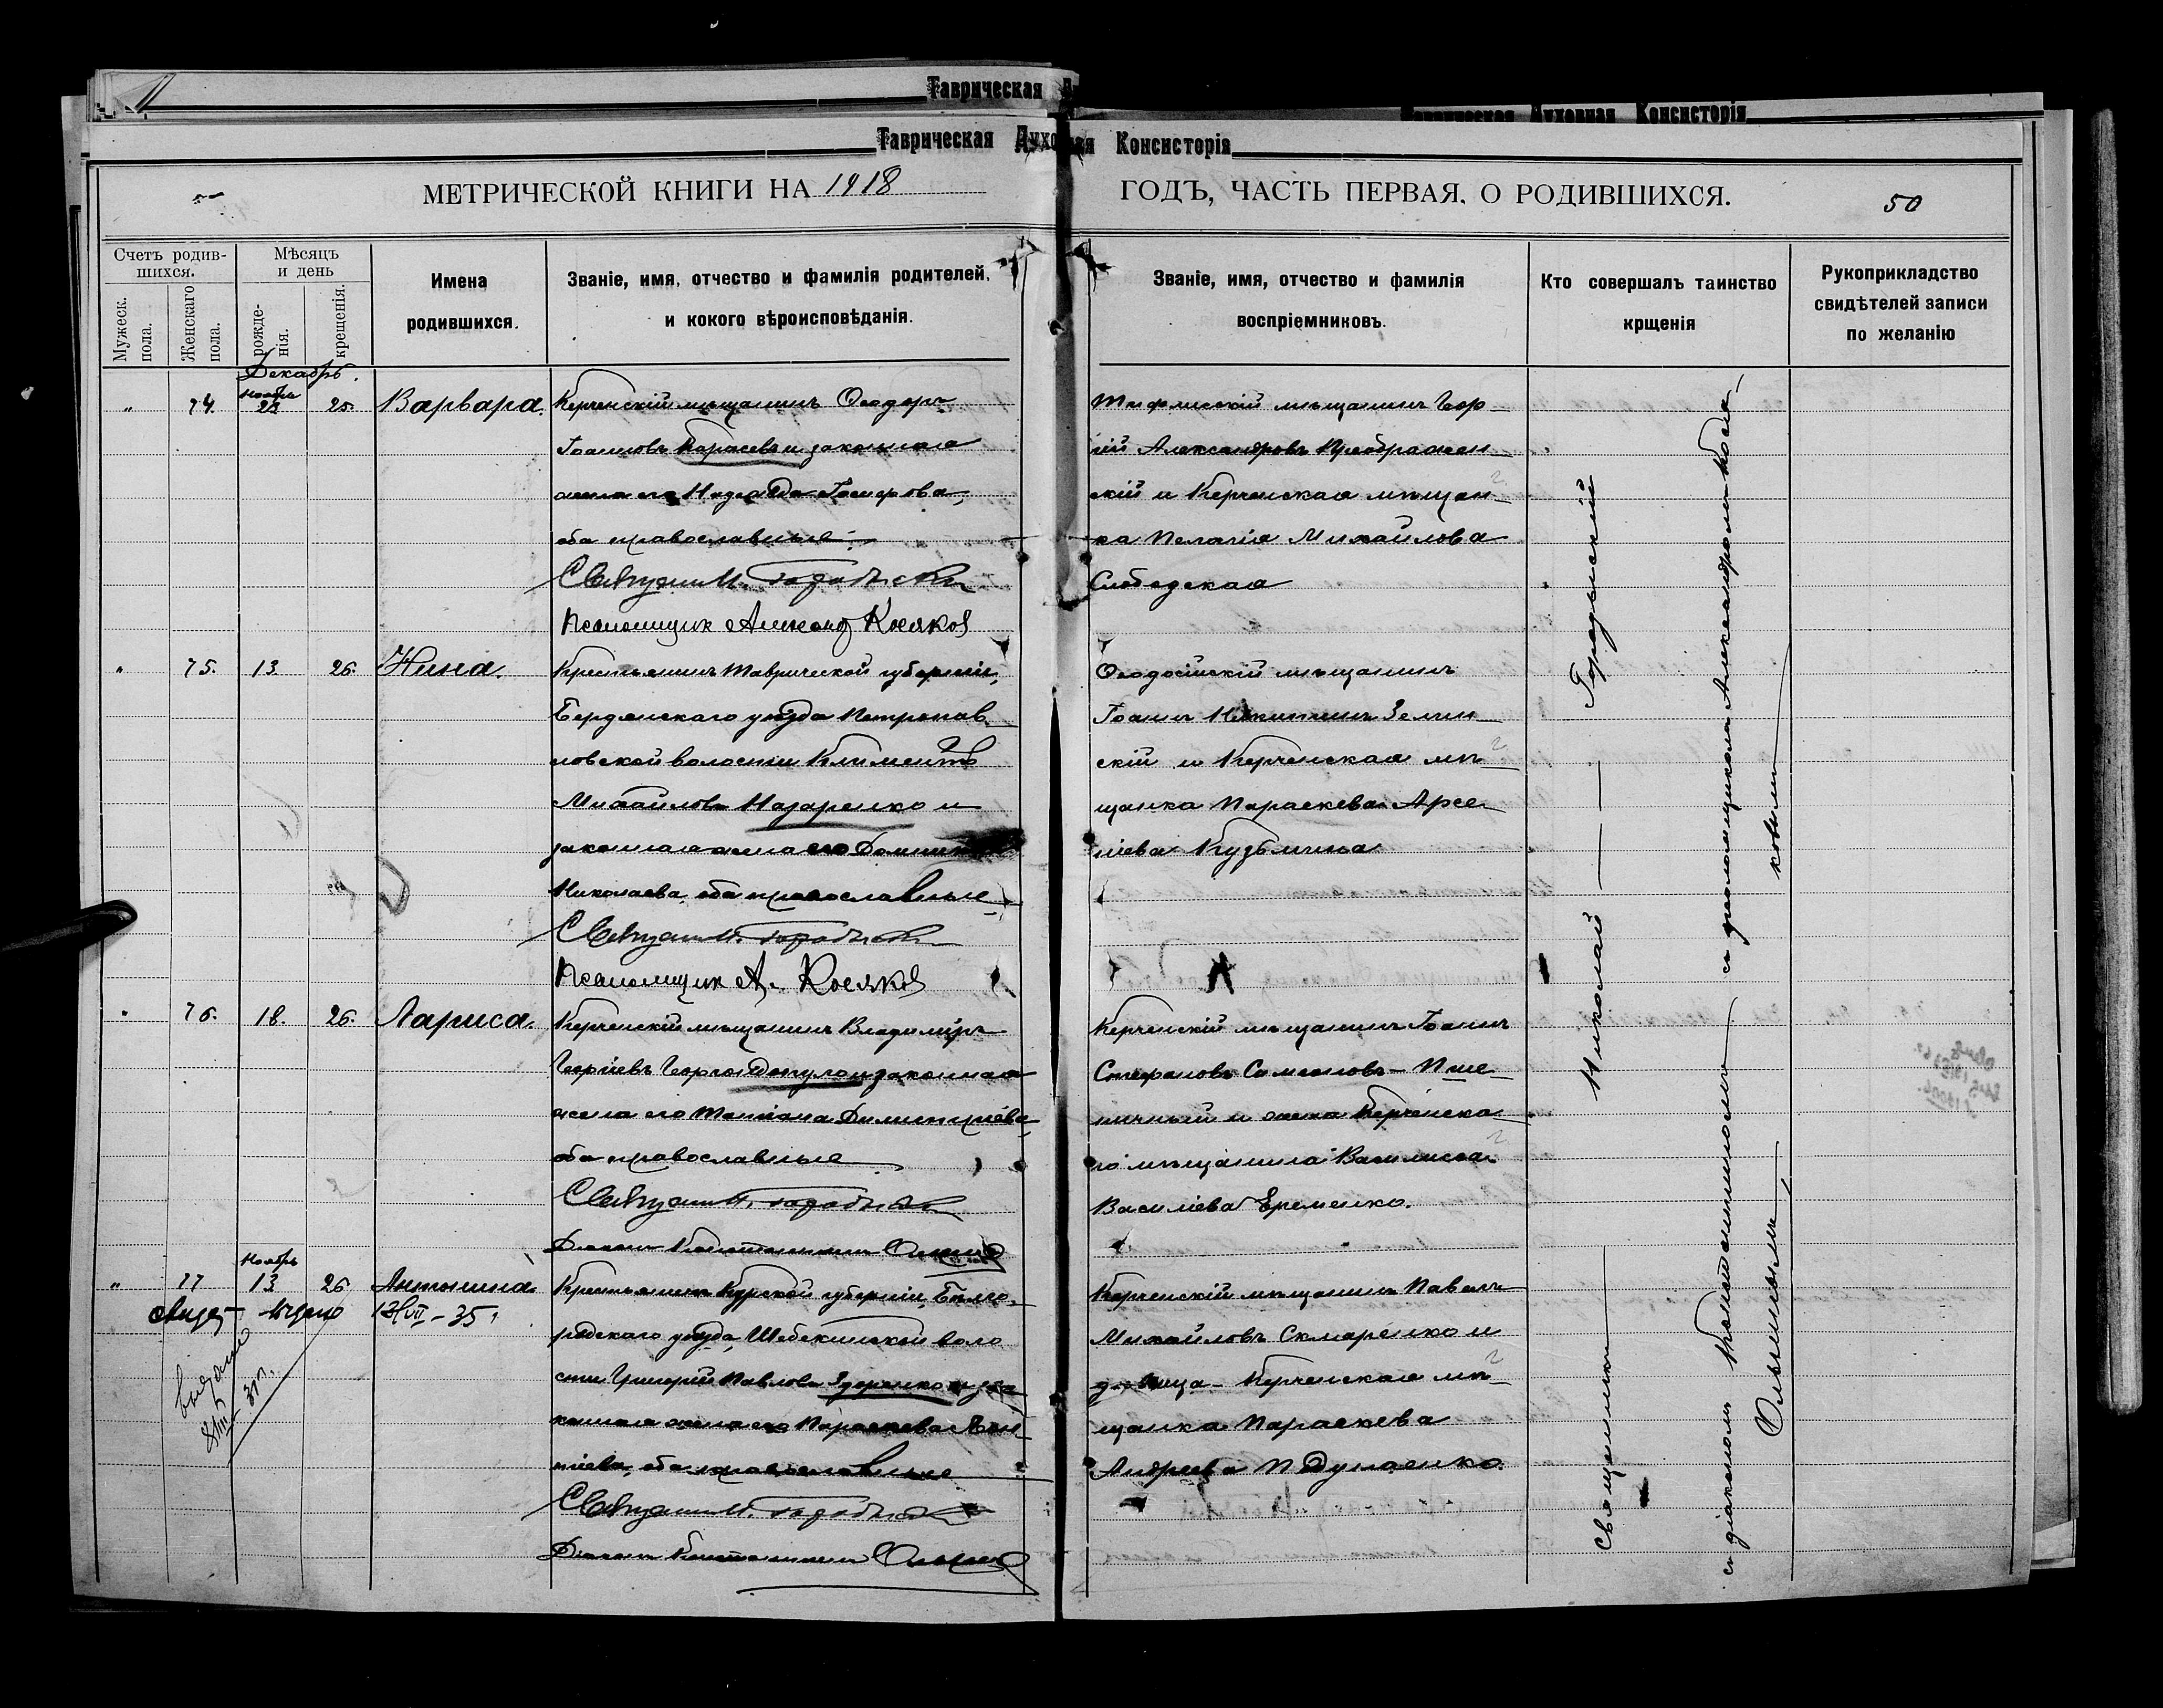 Таврическая
Таврическая Духовная Консисторія
Таврическая Духовная Консисторія
МЕТРИЧЕСКОЙ КНИГИ НА 1918
ГОДЪ, ЧАСТЬ ПЕРВАЯ, О РОДИВШИХСЯ.
50
Счетъ родив-
шихся.
Мужеск. пола.
Женскаго пола.
Мѣсяцъ
и день
рожде-
нія.
крещенія.
Имена
родившихся.
Званіе, имя, отчество и фамилія родителей,
и кокого вѣроисповѣданія.
Званіе, имя, отчество и фамилія
воспріемниковъ.
Кто совершалъ таинство
крщенія
Рукоприкладство
свидѣтелей записи
по желанію
Декабрь.
" 74. Ноябрь 23 25. Варвара.
Керченскій мѣщанинъ Ѳеодоръ
Іоанновъ Карасевъ и законная
жена его Надежда Іосифова,
оба православные
Священ. Н. Городыский
Псаломщик Александ Косяков
Тифлисскій мѣщанинъ Геор-
гій Александровъ Преображен-
скій и Керченская мѣщан-
ка Пелагія Михайлова
Слободская
" 75. 13. 26. Нина.
Крестьянинъ Таврической губерніи,
Бердянскаго уѣзда Петропав-
ловской волости Климентъ
Михайловъ Назаренко и
законная жена его Домникія
Николаева, оба православные
Священ. Н. Городыский
Псаломщик А. Косяков
Ѳеодосійскій мѣщанинъ
Іоаннъ Никитинъ Зелин-
скій и Керченская мѣ-
щанка Параскева Арсе-
ніева Кузьмина
" 76. 18. 26. Лариса.
Керченскій мѣщанинъ Владиміръ
Георгіевъ Георгандопуло и законная
жена его Татіана Димитріева
оба православные
Священ. Н. Городыский
Діакон Константин Ольшев
Керченскій мѣщанинъ Іоаннъ
Стефановъ Самсоновъ-Пше-
ничный и жена Керченска-
го мѣщанина Василисса
Василіева Еременко.
" 77 Ноябрь 13 26 Антонина
выдано 13/VII-35.
выдано
Крестьянинъ Курской губерніи, Бѣлго-
родскаго уѣзда, Шебекинской воло
сти Григорій Павловъ Здоренко и за-
конная жена его Параскева
оба православные
Священ. Н. Городыский
Діакон Константин Ольшев
Керченскій мѣщанинъ Павелъ
Михайловъ Скляренко и
дѣвица - Керченская мѣ-
щанка Параскева
Андреева
Священникъ — Николай — Городыскій
съ діакономъ Константиномъ — съ псаломщикомъ Александромъ Кося-
ковымъ